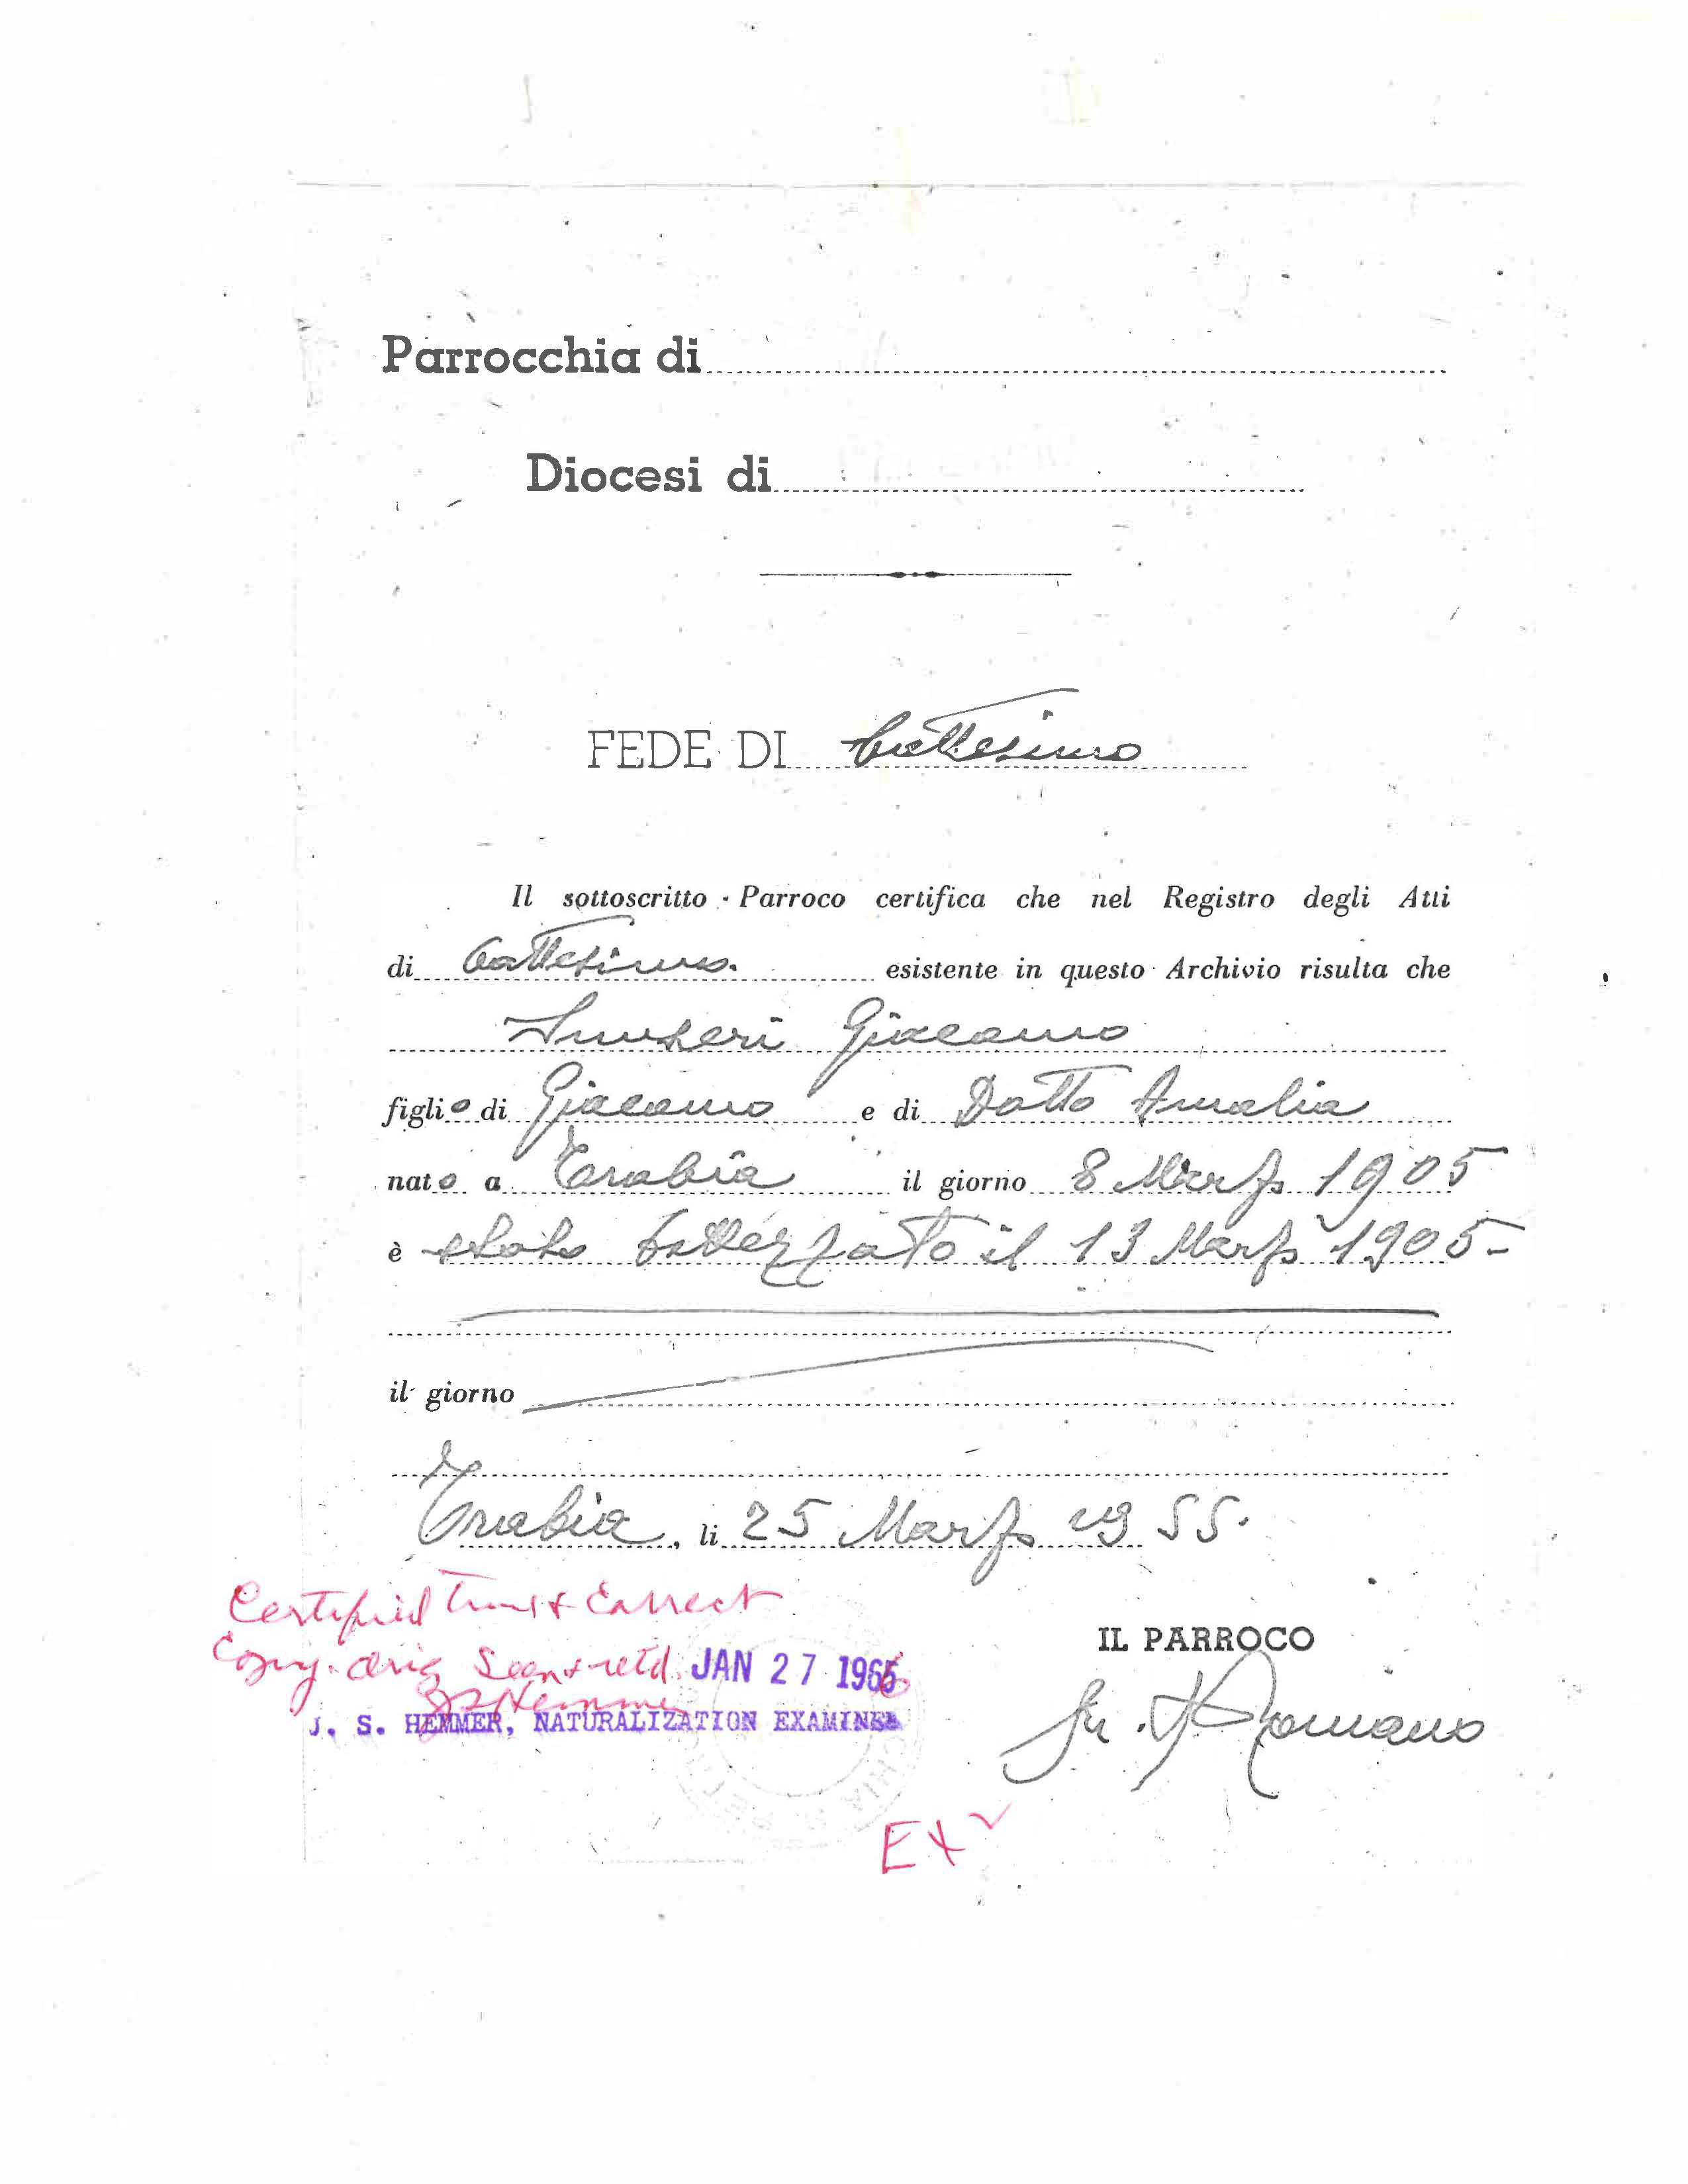 Parrocchia di
Diocesi di
FEDE DI battesimo
Il sottoscritto - Parroco certifica che nel Registro degli Atti
di battesimo. esistente in questo Archivio risulta che
Sunseri Giacomo
figlio di Giacomo e di Dotto Amalia
nato a Trabia il giorno 8 Marzo 1905
è stato battezzato il 13 Marzo 1905-
il giorno
Trabia, li 25 Marzo 1955.
Certified True & Correct
Copy. Orig Seen & retd. JAN 27 1966
JS Hemmer
J. S. HEMMER, NATURALIZATION EXAMINER
IL PARROCO
Romano
Ex